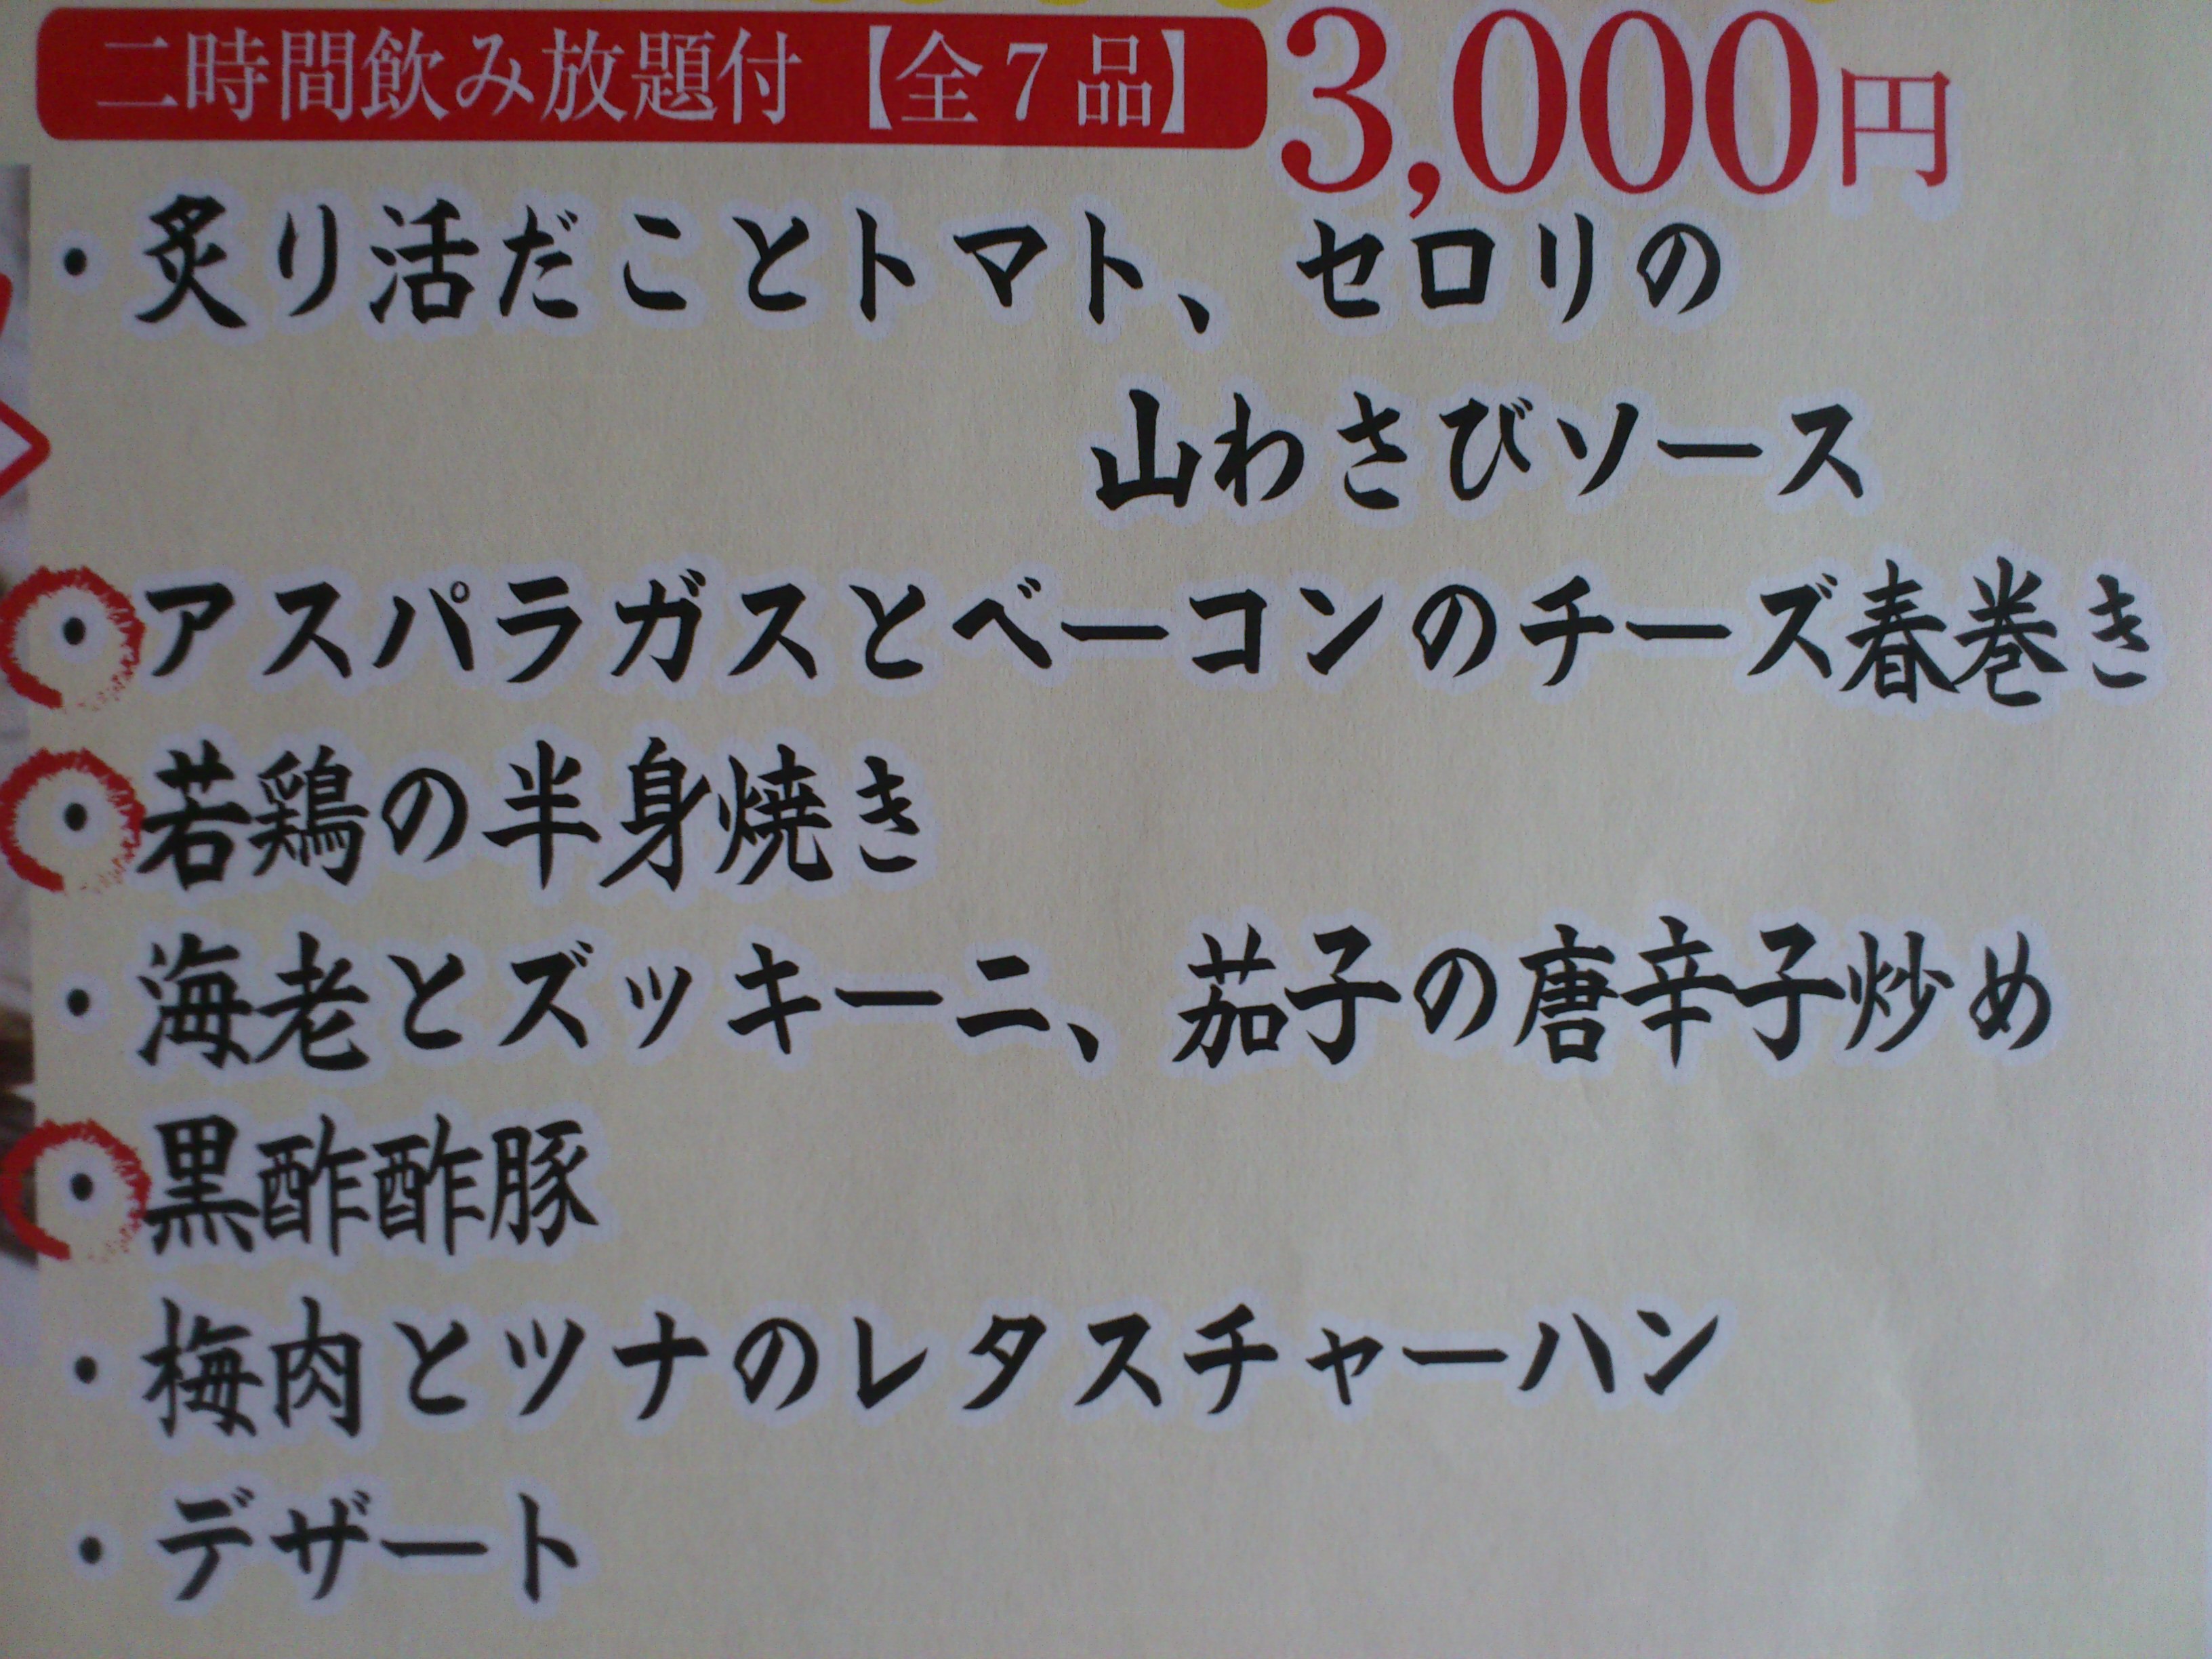 二時間飲み放題付【全7品】3,000円
・炙り活だことトマト、セロリの
山わさびソース
・アスパラガスとベーコンのチーズ春巻き
・若鶏の半身焼き
・海老とズッキーニ、茄子の唐辛子炒め
・黒酢酢豚
・梅肉とツナのレタスチャーハン
・デザート